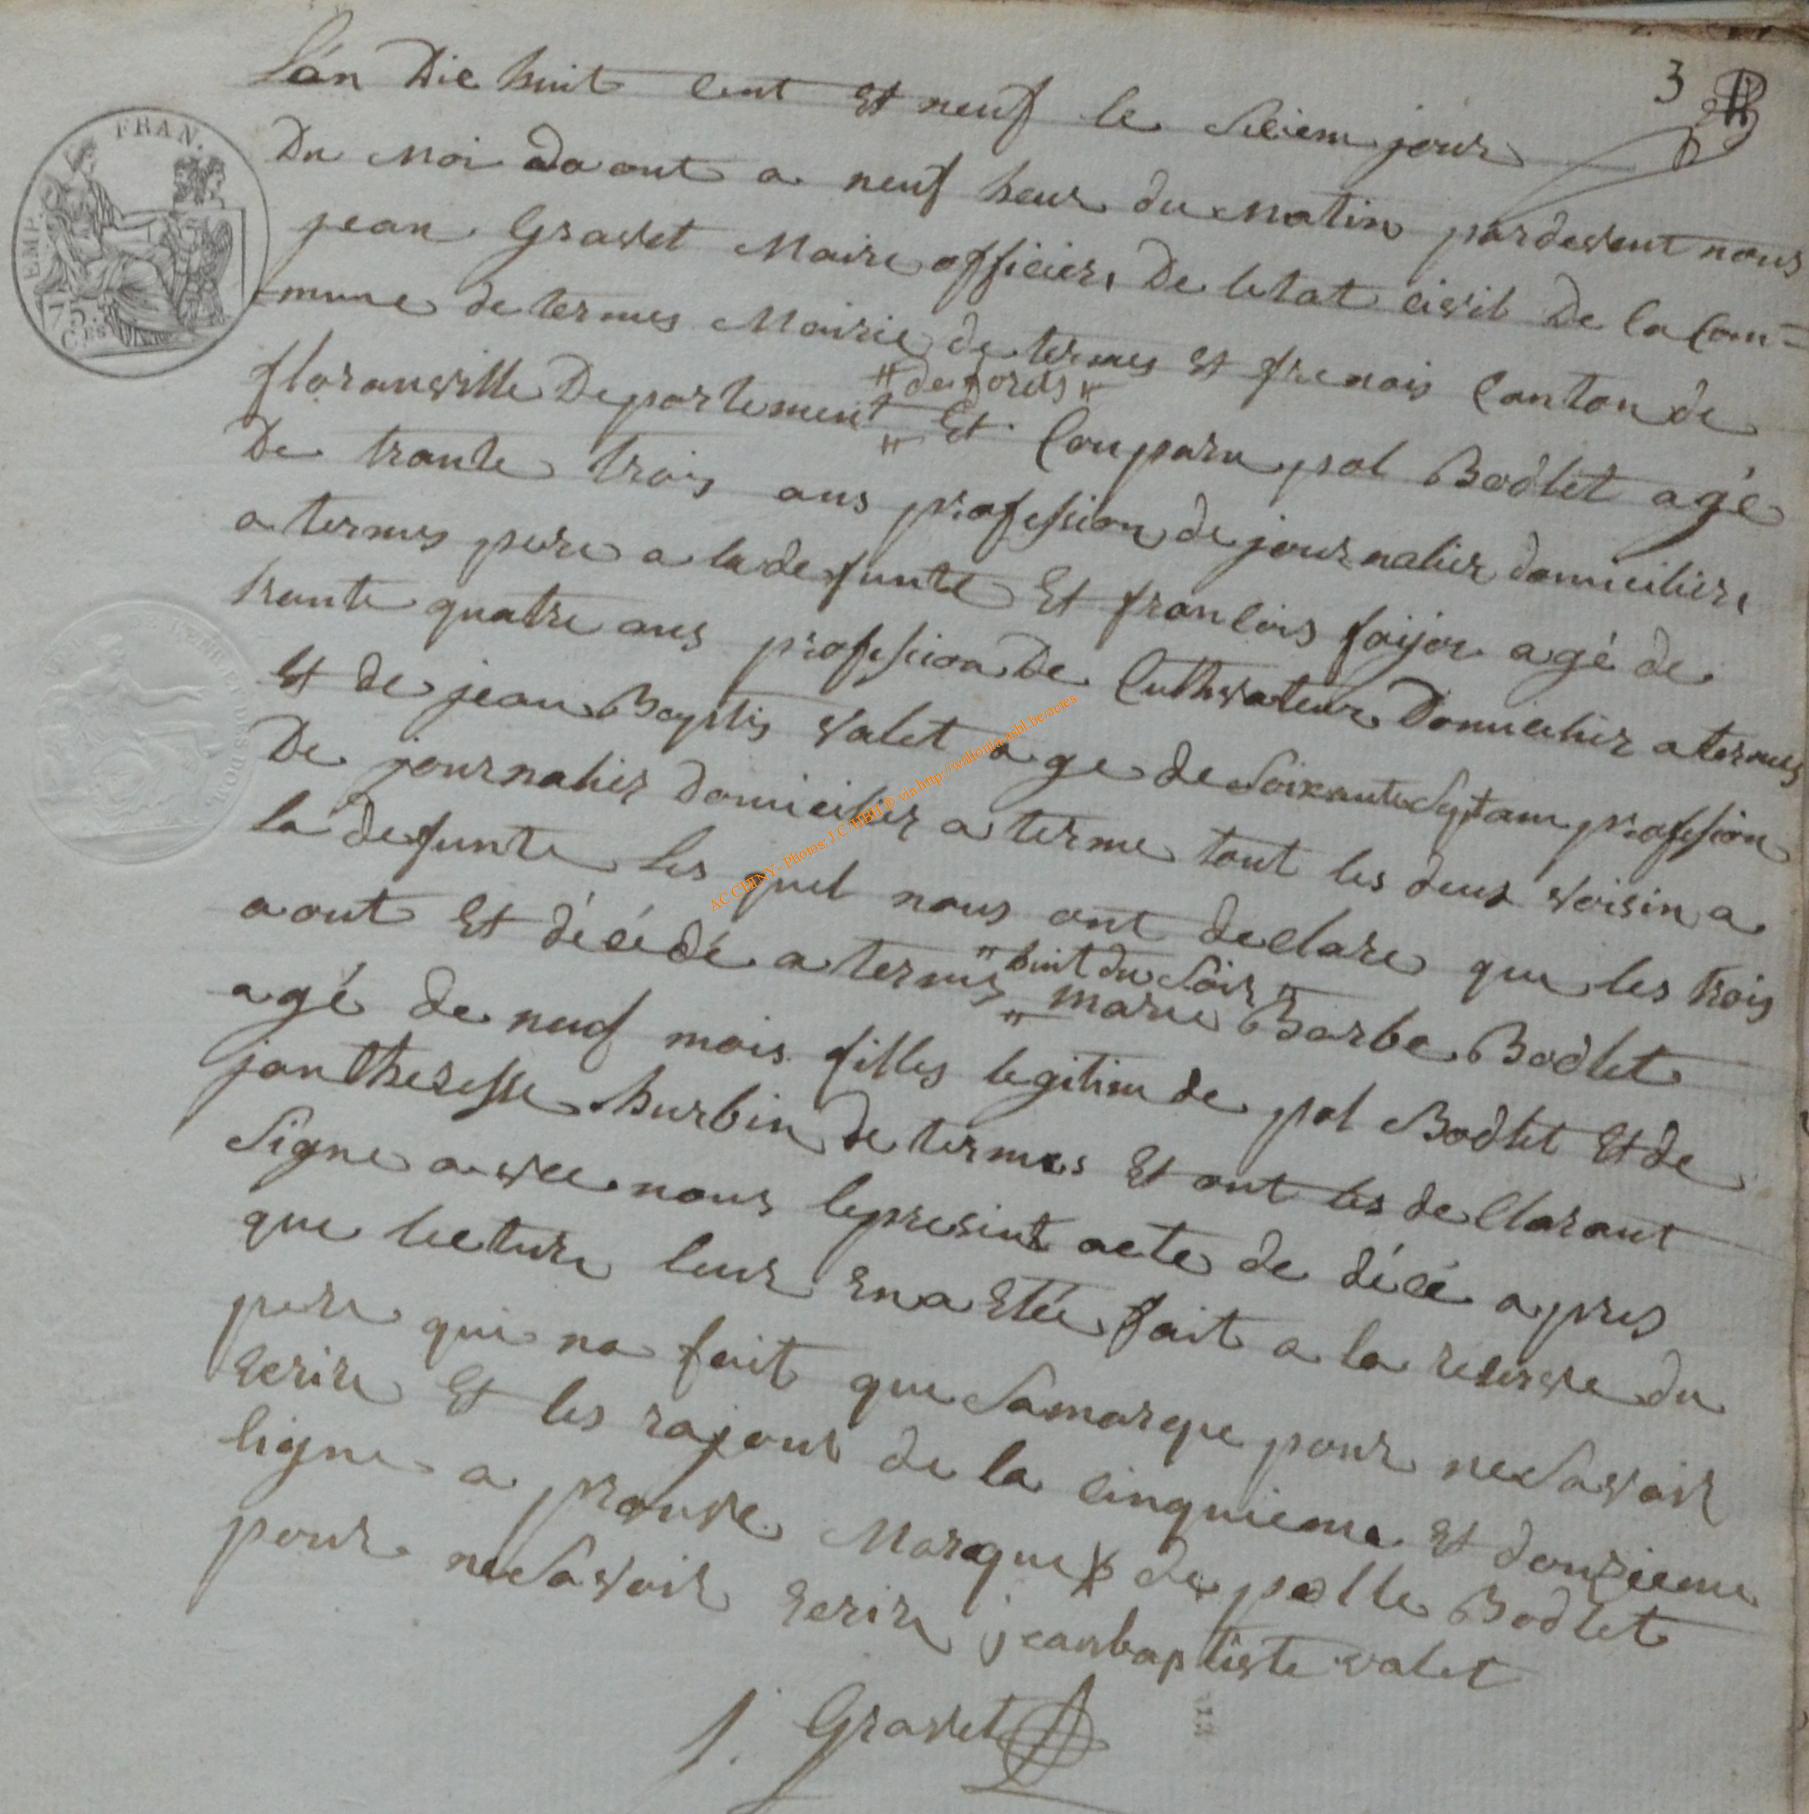 3
L'an Die huit Cent Et neuf le Siciem jour
Du Moi daout a neuf heur du Matin pardevent nous
jean Gravet Maire officier De letat civil De la Com=
=mune de termes Mairie de termes Et frenois Canton de
"des forets"
floranville Departement " Et Conparu pol Bodlet agé
De trante trois ans profession de journalier domicilier
a termes pere a la defunte Et francois foijor agé de
trante quatre ans profesion De Culthvateur Domicilier a termes
Et de jean Baptis valet age de Soixante Septam profesion
De journalier domicilier a terme tout les deux voisin a
la defunte les quel nous ont declare que les trois
"huit du Soir"
aout Et décédé a termes " marie Barbe Bodlet
agé de neuf mois filles legitim de pol Bodlet Et de
jantheresse hurbin de termes Et ont les de Clarant
Signe avec nous le present acte de décé apres
que lecture leur En a Etée fait a la reserve du
pere qui na fait que Samarque pour ne Savoir
Ecrire Et les rajour de la cinquieme Et douzieme
ligne a prouve Marque de polle Bodlet
pour ne Savoir Ecrire jeanbaptiste valet
J. Gravet
FRAN.
EMP.
75
C.ES
AC CHINY - Photos: J.C HBH © via http://wallonia-asbl.be/actes